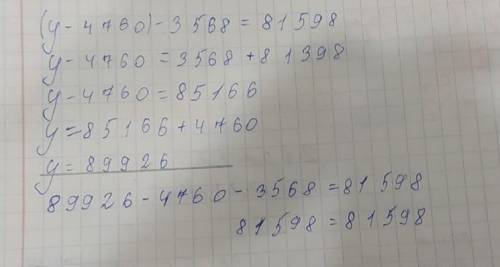 (y - 4760) - 3568 = 81598
y - 4760 = 3568 + 81398
y - 4760 = 85166
y = 85166 + 4760
y = 89926
89926 - 4760 - 3568 = 81598
81598 = 81598